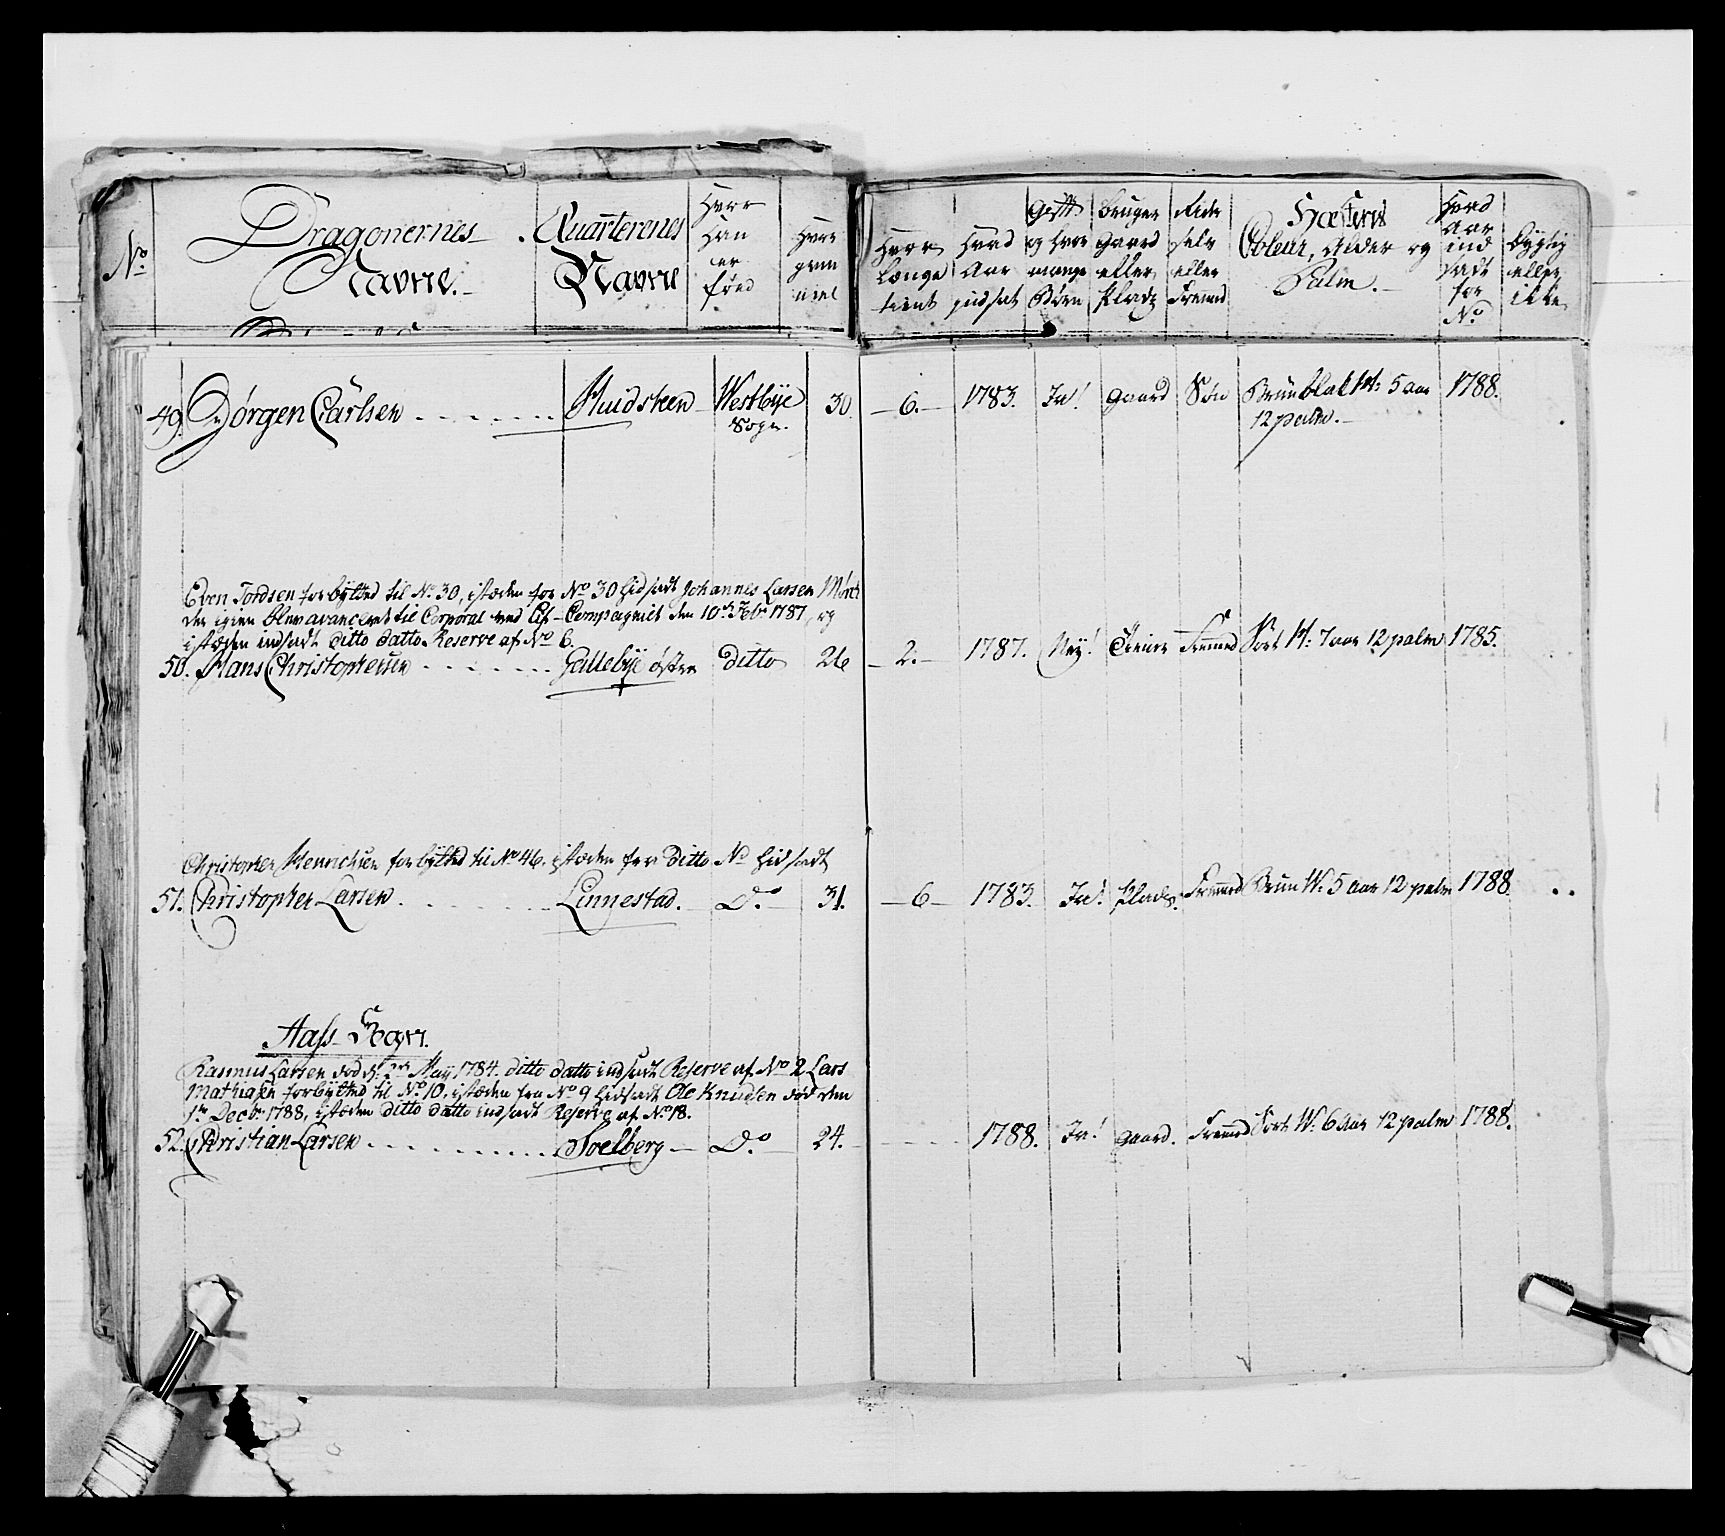 No.
Dragonernes Navne.
Quarterenes Navne
Hvor Han er føed
Hvor gammel
Hvor Længe tient
Hvad Aar indsat
Gift og hvor mange Børn
Bruger Gaard eller Pladz
Eide selv eller Fremmed
Hæstens Coleur, Alder og Palm.
Hvad Aar indsadt for No
Dygtig eller ikke
49. Jørgen Carlsen Huidsteen Westbÿe 30. 6. 1783. Ja! Gaard Søn Bruunblak H: 5 aar 1788.
Sogn. 12 palm.
Even Tordsen forbytted til No 30, isteden for No 30 hidsadt Johannes Larsen Mørch
der igien blev avanceret til Corporal ved Lif-Compagniet den 10de Febr 1787, og
isteden indsadt ditto datto Reserve af No 6.
50. Hans Christophersen Gallebÿe østre ditto 26 2. 1787. Neÿ! Tiener Fremmed Sort H: 7 aar 12 palm 1785.
Christopher Henrichsen forbytted til No 46. isteden for ditto No hidsadt
51. Christopher Larsen Linnestad. Do 31. 6 1783. Ja! Plads. Fremmed Bruun W: 5 aar 12 palm 1788
Aass Sogn.
Rasmus Larsen død d: May 1784. ditto datto indsadt Reserve af No 2 Lars
Mathisen forbytted til No 10. isteden fra No 9 hidsadt Ole Knudsen død den
1te Decbr 1788, isteden ditto datto indsadt Reserve af No 18.
52. Christian Larsen Soelberg Do 24. 1788. Ja! Gaard. Fremmed Sort W: 6 aar 12 palm 1788.